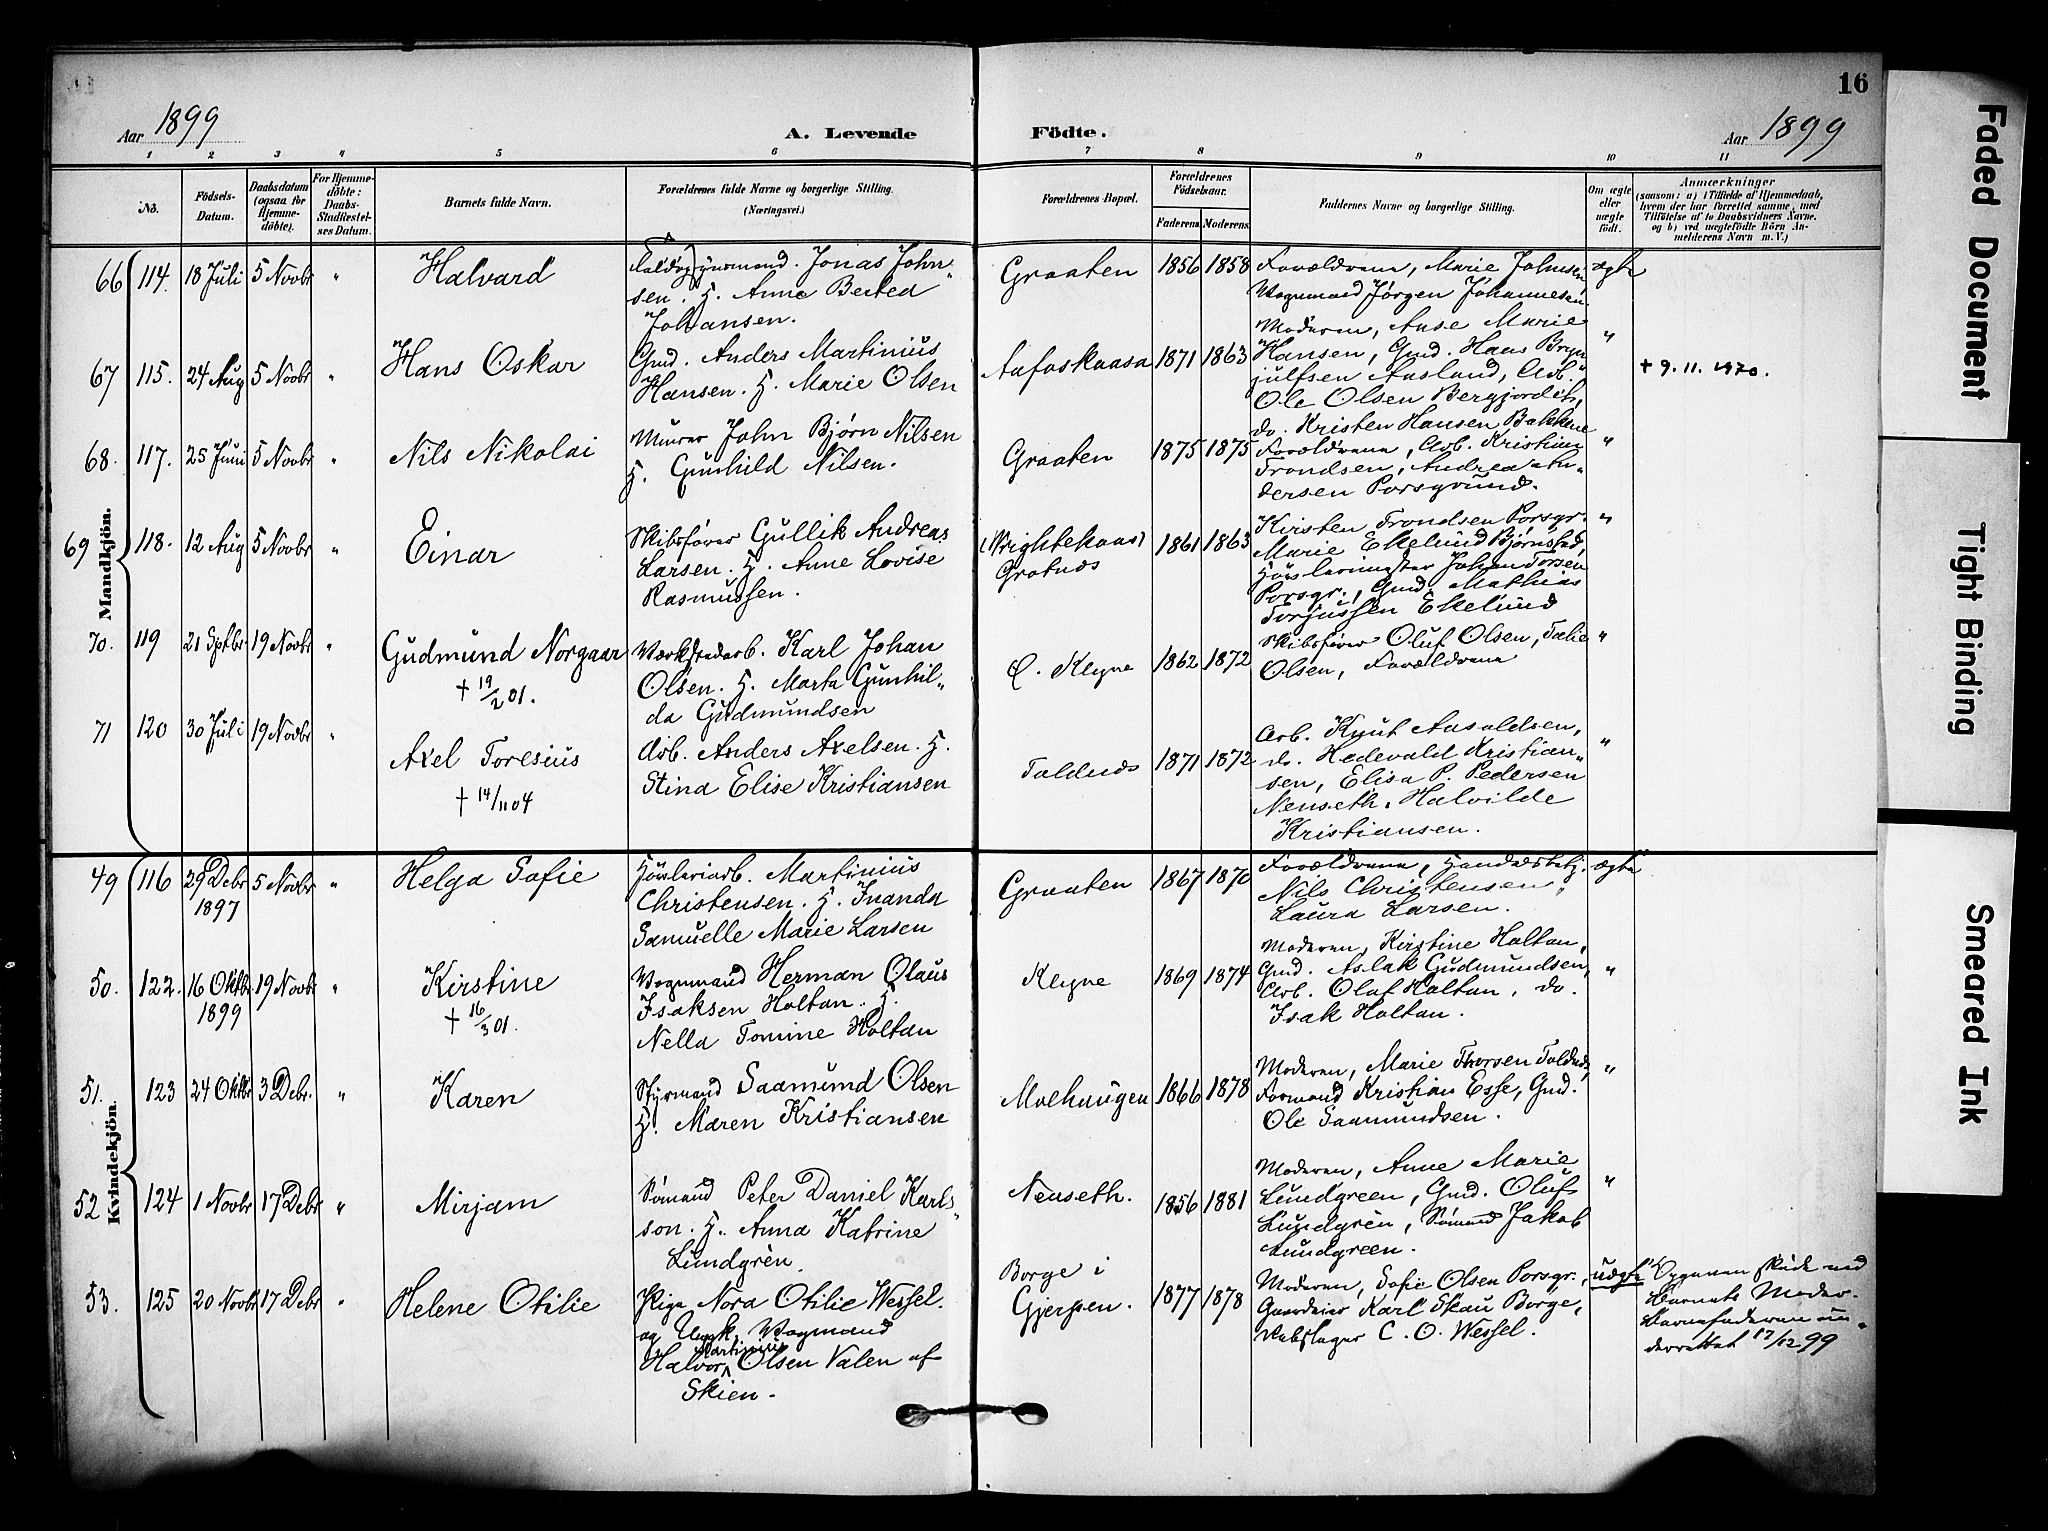 16
Aar 1899
A. Levende Födte.
Aar 1899
1 2 3 4 5 6 7 8 9 10 11
No.
Födsels-Datum.
Daabsdatum (ogsaa for Hjemmedöbte).
For Hjemmedöbte: Daabs-Stadfæstelses Datum.
Barnets fulde Navn.
Forældrenes fulde Navne og borgerlige Stilling.
(Næringsvei.)
Forældrenes Bopæl.
Forældrenes Födselsaar.
Faderens Moderens
Faddernes Navne og borgerlige Stilling.
Om ægte eller uægte födt.
Anmærkninger
(saasom: a) i Tilfælde af Hjemmedaab,
hvem der har forrettet samme, med
Tilföielse af to Daabsvidners Navne.
og b) ved uægtefödte Börn Anmelderens Navn m. V.)
Mandkjön.
66 114. 18 Juli 5 Novbr " Halvard
Jonas John-
sen. H. Anne Berthea
Johansen.
Graaten 1856 1858
Forældrene, Marie Johnsen,
Vognmand Jörgen Johannesen
ægte
67 115. 24 Aug 5 Novbr " Hans Oskar
Gmd. Anders Martinius
Hansen. H. Marie Olsen
Aafoskaasa 1871 1863
Moderen, Aase Marie
Hansen, Gmd. Hans Bryn-
julfsen Aasland, Arb.
Ole Olsen Bergjordet,
do. Kristen Hansen Bakkene
"
+ 9.11.1970.
68. 117. 25 Juni 5 Novbr " Nils Nikolai
Murer John Bjørn Nilsen
H. Gunhild Nilsen.
Graaten 1875 1875
Forældrene, Arb. Kristian
Trondsen, Andrea An-
dersen Porsgrund.
"
69 118. 12 Aug 5 Novbr " Einar
Skibsfører Gullik Andreas
Larsen. H. Anne Lovise
Rasmussen.
(Wrightekaas)
Grotnæs
1861 1863
Kirsten Trondsen Porsgr.
Marie Ekelund Bjørnstad,
Høvlerimester Johan Torsen
Porsgr., Gmd. Mathias
Torjussen Ekelund
"
70. 119 21 Sptbr. 19 Novbr " Gudmund Norgaar
+ 19/2 01.
Værkstedarb. Karl Johan
Olsen. H. Marta Gunhil-
da Gudmundsen
Ø. Klyve 1862 1872
Skibsfører Oluf Olsen, Talie
Olsen, Forældrene
"
71 120 30 Juli 19 Novbr " Axel Toresius
+ 14/11 04
Arb. Anders Axelsen. H.
Stina Elise Kristiansen
Toldnæs 1871 1872
Arb. Knut Aasoldsen,
do. Hedevald Kristian-
sen, Elisa P. Pedersen
Nenseth. Halvilde
Kristiansen.
"
Kvindekjön.
49 116 29 Debr 1897 5 Novbr " Helga Sofie
Høvleriarb. Martinius
Christensen. H. Inanda
Samuelle Marie Larsen
Graaten 1867 1870
Forældrene, Handelsbetj.
Nils Christensen
Laura Larsen.
ægte
50. 122. 16 Oktbr. 1899 19 Novbr " Kirstine
+ 16/3 01.
Vognmand Herman Olaus
Isaksen Holtan. H.
Nella Tomine Holtan
Klyve 1869 1874
Moderen, Kirstine Holtan,
Gmd. Aslak Gudmundsen,
Arb. Olaf Holtan, do.
Isak Holtan.
"
51. 123 24 Oktbr 3 Debr. " Karen
Styrmand Saamund Olsen
H. Maren Kristiansen
Moehaugen 1866 1878
Moderen, Marie Thorsen Toldnæs,
Formand Kristian Esse, Gmd.
Ole Saamundsen.
"
52 124 1 Novbr 17 Debr " Mirjam
Sømand Peter Daniel Karls-
son. H. Anna Katrine
Lundgrèn.
Nenseth. 1856 1881
Moderen, Anne Marie
Lundgreen, Gmd. Oluf
Lundgrèn, Sømand Jakob
Lundgreen.
"
53. 125 20 Novbr 17 Debr " Helene Otilie
Pige Nora Otilie Wessel.
og Ungk. Vogmand
Halvor Martinius Olsen Valen af
Skien.
Borge i
Gjerpen.
1877 1878
Moderen, Sofie Olsen Porsgr.,
Gaardeier Karl Skau Borge,
Rebslager C. O. Wessel.
uægte
Opgaven skede ved
Barnets Moder.
Barnefaderen un-
derrettet 17/12 99
Faded Document
Tight Binding
Smeared Ink